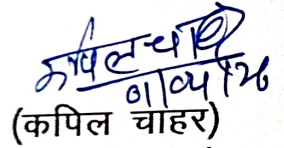 कपिल चाहर
01/04/26
(कपिल चाहर)